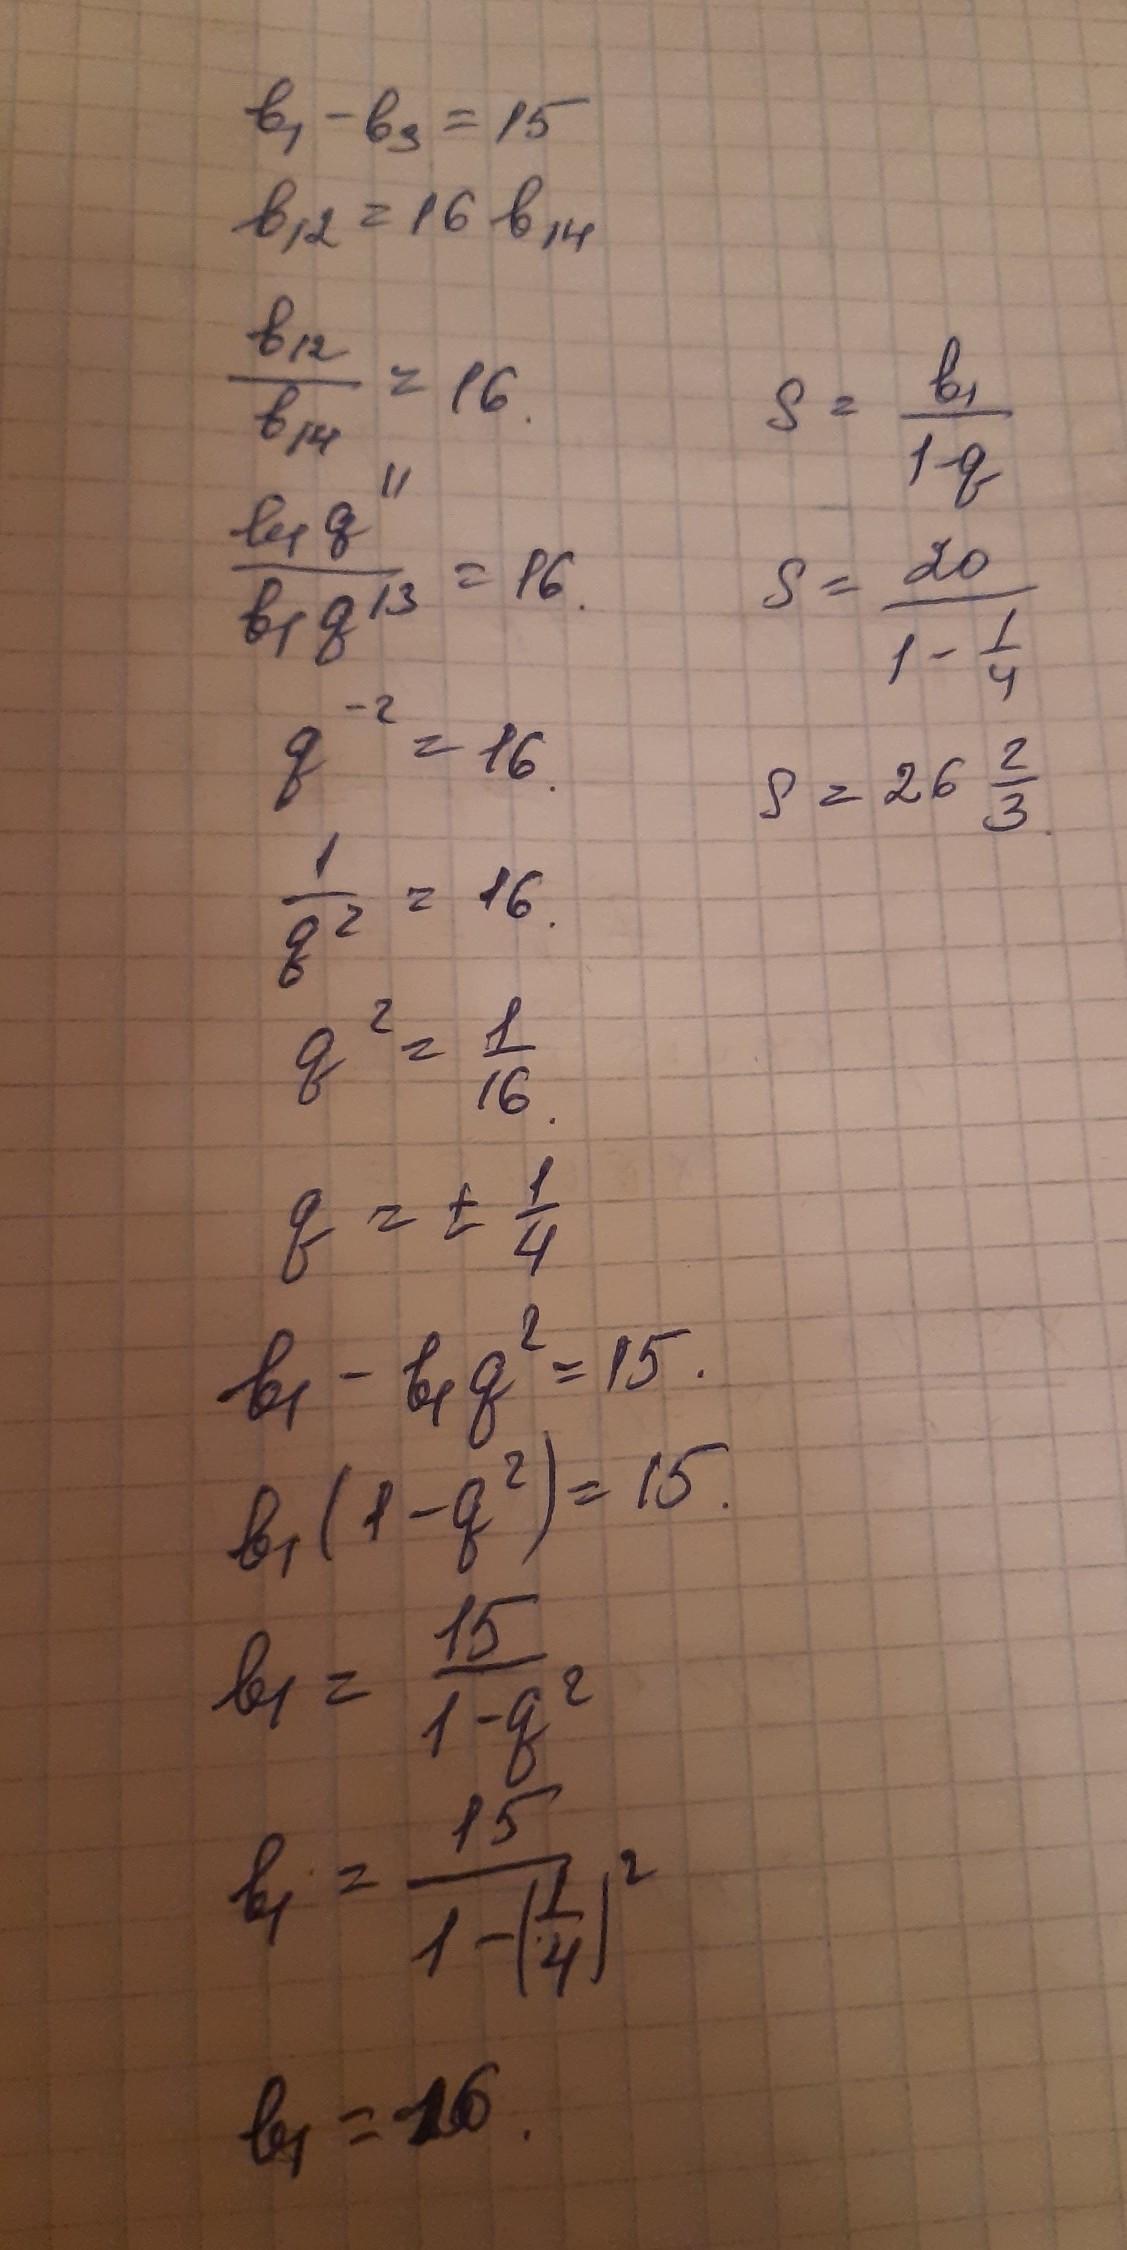 b₁ - b₃ = 15
b₁₂ = 16 b₁₄
b₁₂/b₁₄ = 16.
b₁q¹¹/b₁q¹³ = 16.
q⁻² = 16.
1/q² = 16.
q² = 1/16.
q = ± 1/4
b₁ - b₁q² = 15.
b₁(1 - q²) = 15.
b₁ = 15/(1 - q²)
b₁ = 15/(1 - (1/4)²)
b₁ = 16.
S = b₁/(1 - q)
S = 20/(1 - 1/4)
S = 26 2/3.